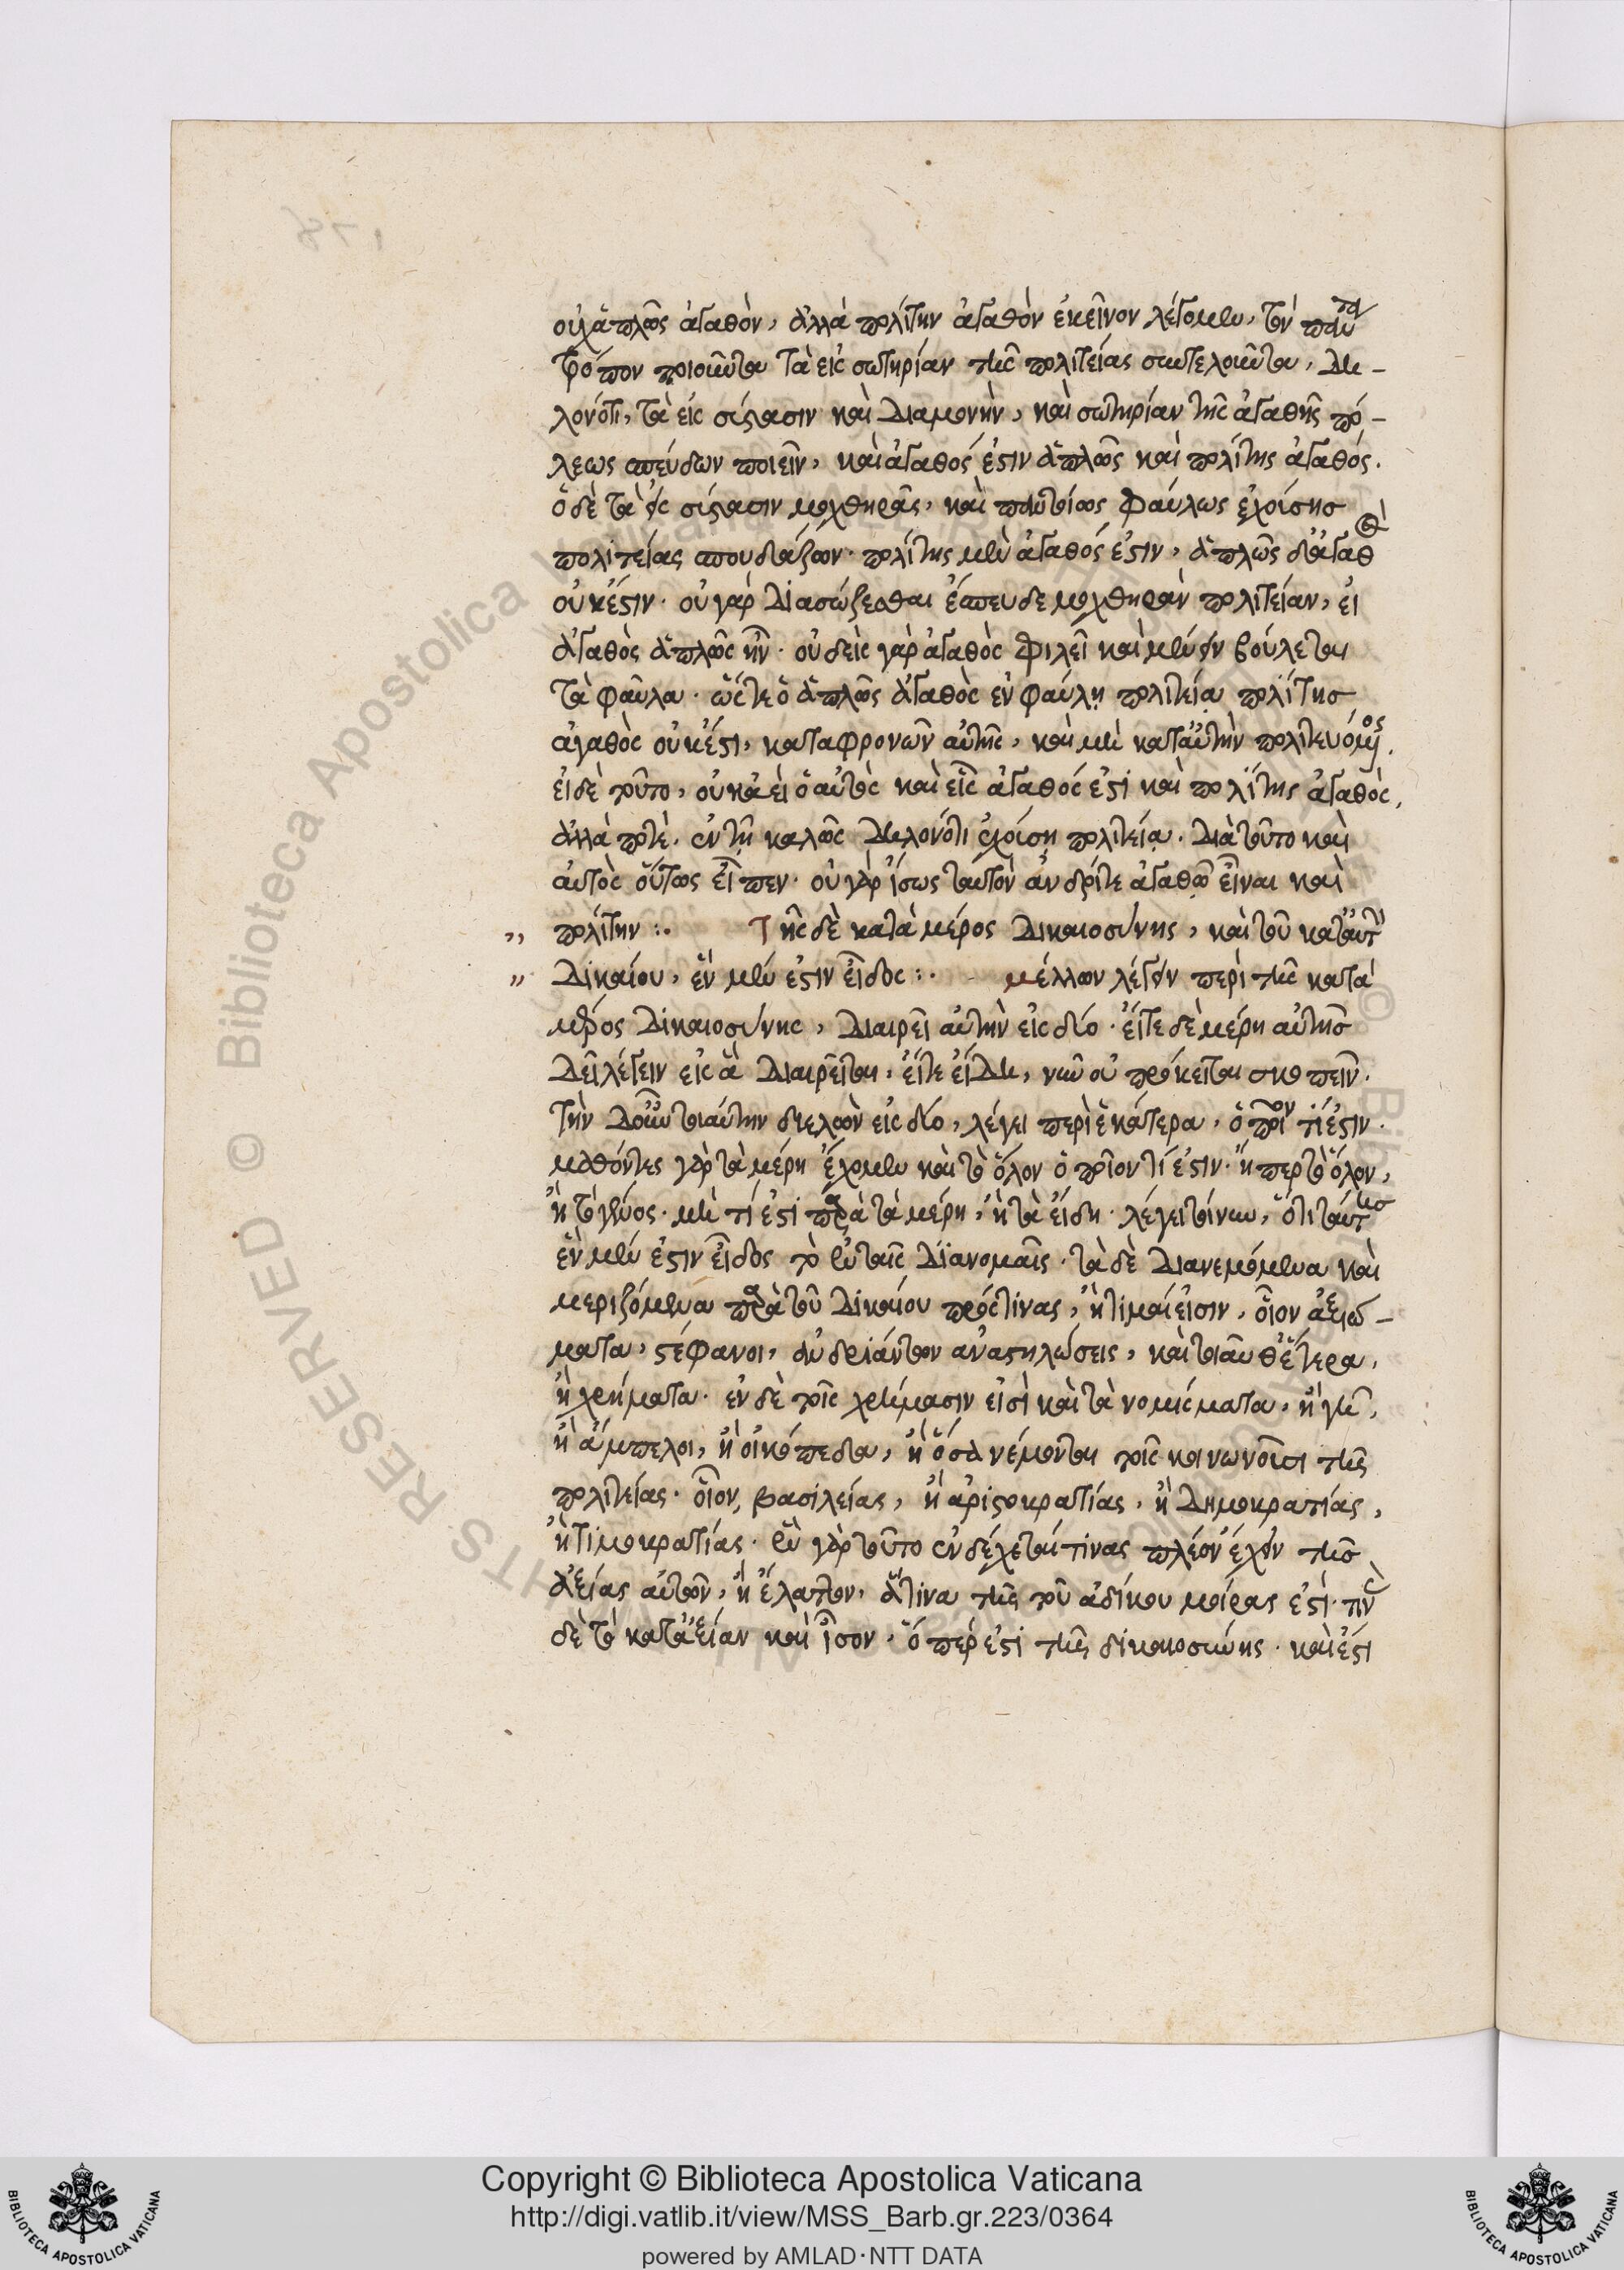 οὐχ ἁπλῶς ἀγαθὸν, ἀλλὰ πολίτην ἀγαθὸν ἐκεῖνον λέγομεν, τὸν πάντα
τρόπον ποιοῦντα τὰ εἰς σωτηρίαν τῆς πολιτείας συντελοῦντα, δη-
λονότι, τὰ εἰς σύστασιν καὶ διαμονὴν, καὶ σωτηρίαν τῆς ἀγαθῆς πό-
λεως σπεύδων ποιεῖν, καὶ ἀγαθός ἐστιν ἁπλῶς καὶ πολίτης ἀγαθός.
ὁ δὲ τὰ εἰς σύστασιν μοχθηρᾶς, καὶ παντοίως φαύλως ἐχούσης
πολιτείας σπουδάζων· πολίτης μὲν ἀγαθός ἐστιν, ἁπλῶς δ' ἀγαθὸς
οὐκ ἔστιν· οὐ γὰρ διασώζεσθαι ἔσπευδε μοχθηρὰν πολιτείαν, εἰ
ἀγαθὸς ἁπλῶς ἦν· οὐδεὶς γὰρ ἀγαθὸς φιλεῖ καὶ μένειν βούλεται
τὰ φαῦλα· ὥστε ὁ ἁπλῶς ἀγαθὸς ἐν φαύλῃ πολιτείᾳ πολίτης
ἀγαθὸς οὐκ ἔστι, καταφρονῶν αὐτῆς, καὶ μὴ κατ' αὐτὴν πολιτευόμενος.
εἰ δὲ τοῦτο, οὐκ ἀεὶ ὁ αὐτὸς καὶ εἷς ἀγαθός ἐστι καὶ πολίτης ἀγαθὸς,
ἀλλὰ ποτὲ. ἐν τῇ καλῶς δηλονότι ἐχούσῃ πολιτείᾳ. διὰ τοῦτο καὶ
αὐτὸς οὕτως εἶπεν· οὐ γὰρ ἴσως ταυτὸν ἀνδρί τε ἀγαθῷ εἶναι καὶ
,, πολίτην :. Τῆς δὲ κατὰ μέρος δικαιοσύνης, καὶ τοῦ κατ' αὐτὴν
,, δικαίου, ἓν μέν ἐστιν εἶδος :. μέλλων λέγειν περὶ τῆς κατὰ
μέρος δικαιοσύνης, διαιρεῖ αὐτὴν εἰς δύο. εἴτε δὲ μέρη αὐτῆς
δεῖ λέγειν εἰς ἃ διαιρεῖται, εἴτε εἴδη, νῦν οὐ πρόκειται σκοπεῖν.
Τὴν δ' οὖν τοιαύτην διελὼν εἰς δύο, λέγει περὶ ἑκάτερα, ὁποῖόν τί ἐστιν.
μαθόντες γὰρ τὰ μέρη ἔχομεν καὶ τὸ ὅλον ὁποῖόν τί ἐστιν. εἴπερ τὸ ὅλον,
ἢ τὸ γένος. μή τί ἐστι παρὰ τὰ μέρη, ἢ τὰ εἴδη. λέγει τοίνυν, ὅτι ταύτης
ἓν μέν ἐστιν εἶδος τὸ ἐν ταῖς διανομαῖς. τὰ δὲ διανεμόμενα καὶ
μεριζόμενα παρὰ τοῦ δικαίου πρός τινας, ἢ τιμαί εἰσιν, οἷον ἀξιώ-
ματα, στέφανοι, ἀνδριάντων ἀναστηλώσεις, καὶ τοιαῦθ' ἕτερα,
ἢ χρήματα. ἐν δὲ τοῖς χρήμασιν εἰσὶ καὶ τὰ νομίσματα, ἢ γῆ,
ἢ ἄμπελοι, ἢ οἰκόπεδα, ἢ ὅσα νέμονται τοῖς κοινωνοῦσι τῆς
πολιτείας. οἷον, βασιλείας, ἢ ἀριστοκρατίας, ἢ δημοκρατίας,
ἢ τιμοκρατίας. ἐν γὰρ τούτο ἐνδέχεταί τινας πλέον ἔχειν τῆς
ἀξίας αὐτῶν, ἢ ἔλαττον, ἅτινα τῆς τοῦ ἀδίκου μοίρας ἐστί.
δὲ τὸ κατ' ἀξίαν καὶ ἶσον. ὅπερ ἐστὶ τῆς δικαιοσύνης. καὶ ἔστι
Copyright © Biblioteca Apostolica Vaticana
http://digi.vatlib.it/view/MSS_Barb.gr.223/0364
powered by AMLAD·NTT DATA